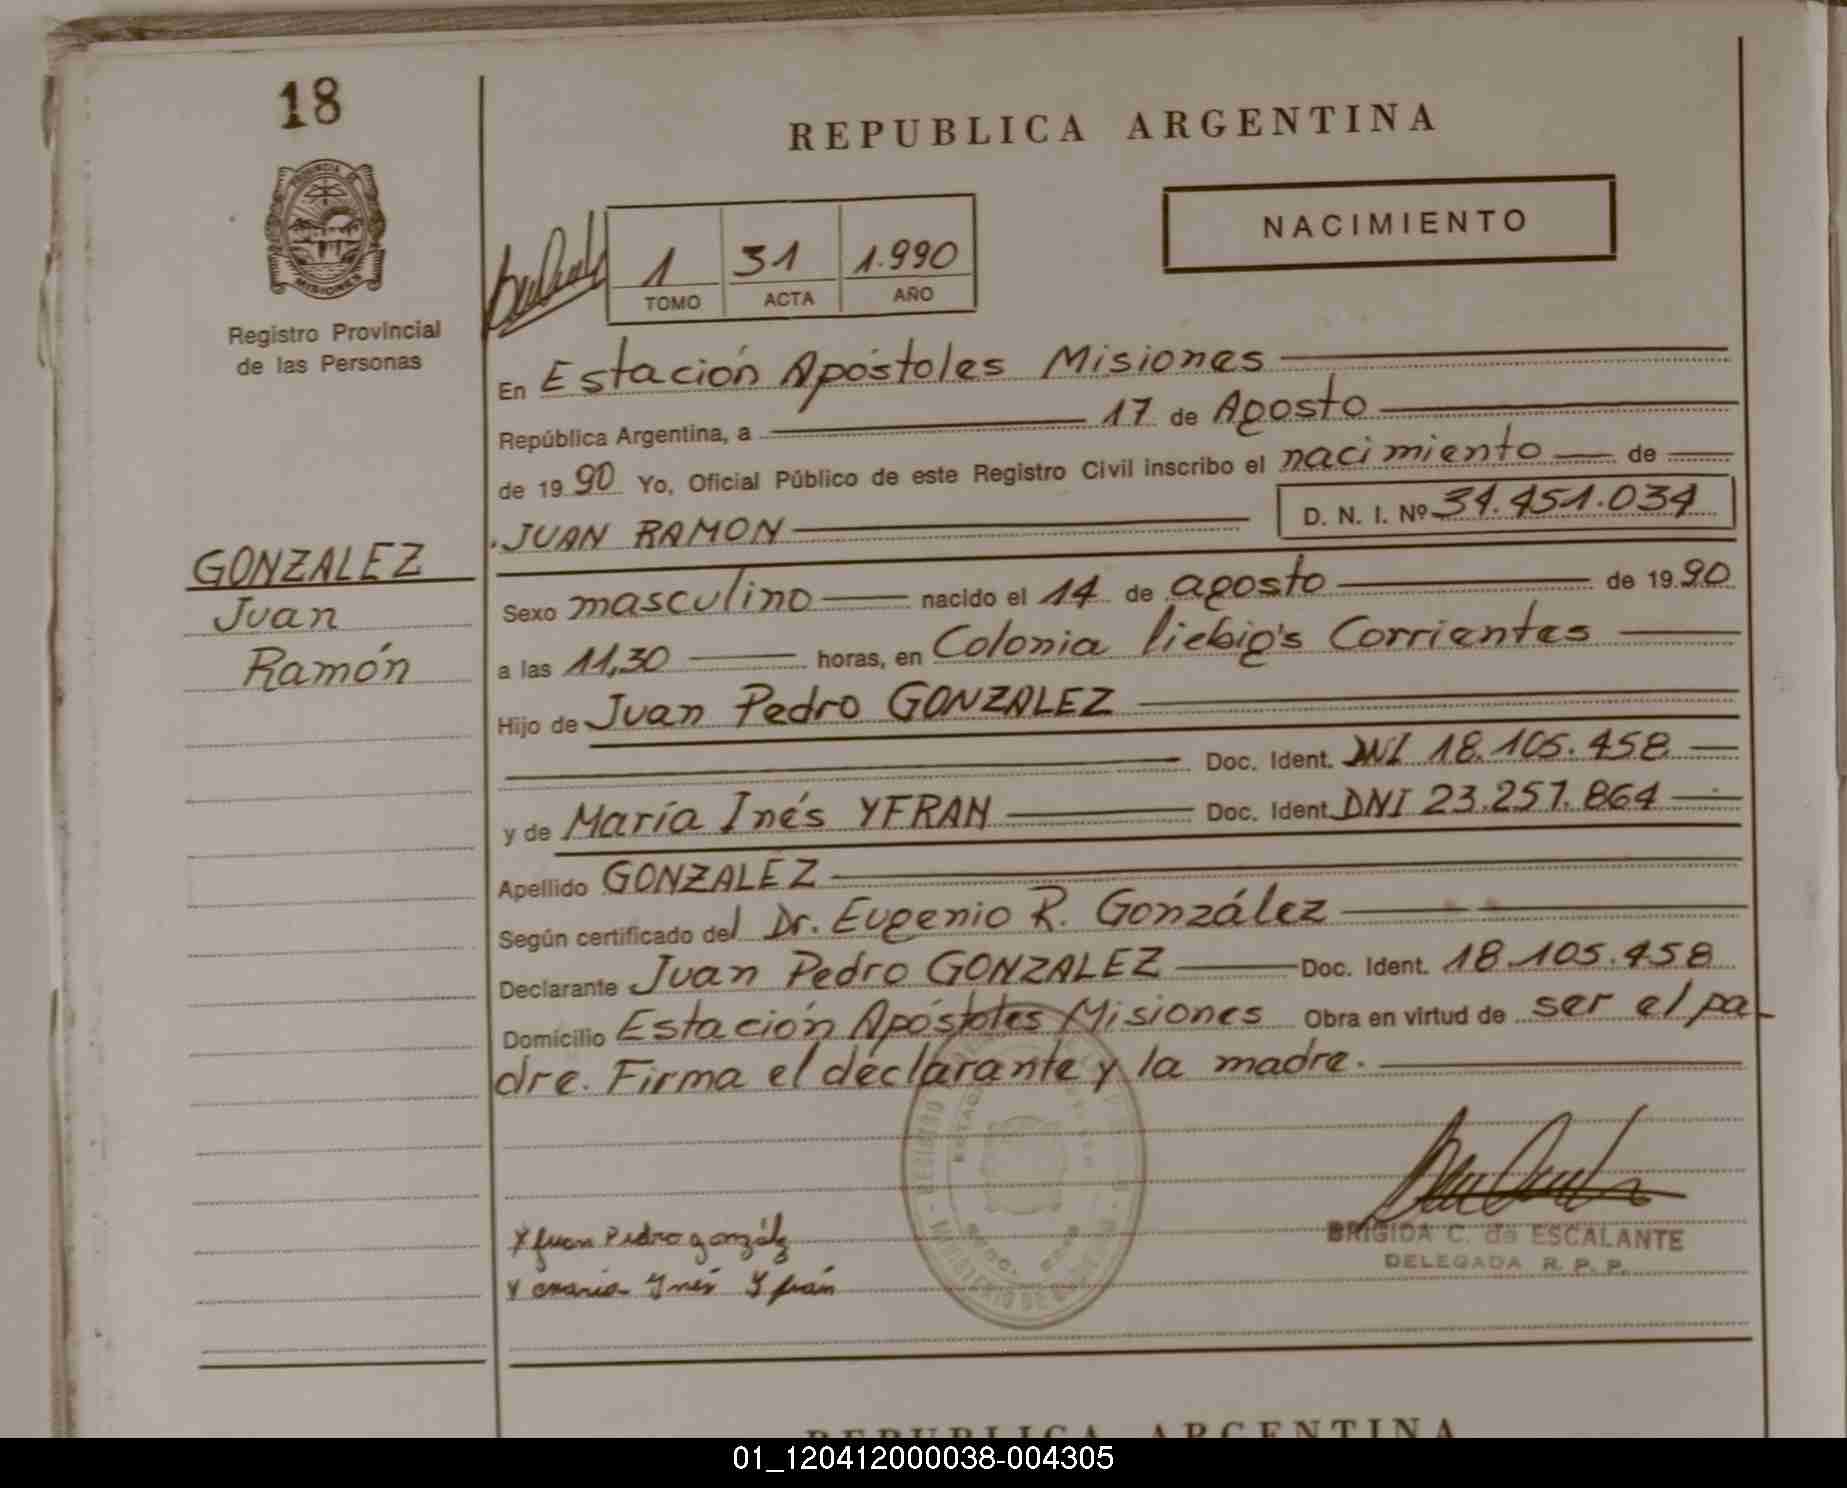 18
REPUBLICA ARGENTINA
PROVINCIA DE
MISIONES
Registro Provincial
de las Personas
1 31 1.990
TOMO ACTA AÑO
NACIMIENTO
En Estación Apóstoles Misiones
República Argentina, a 17 de Agosto
de 1990 Yo, Oficial Público de este Registro Civil inscribo el nacimiento de
JUAN RAMON D. N. I. Nº 34.451.034
GONZALEZ
Juan
Ramón
Sexo masculino nacido el 14 de agosto de 1990
a las 11,30 horas, en Colonia liebig's Corrientes
Hijo de Juan Pedro GONZALEZ
Doc. Ident. DNI 18.105.458
y de María Inés YFRAN Doc. Ident. DNI 23.257.864
Apellido GONZALEZ
Según certificado del Dr. Eugenio R. González
Declarante Juan Pedro GONZALEZ Doc. Ident. 18.105.458
Domicilio Estación Apóstoles Misiones Obra en virtud de ser el pa-
dre. Firma el declarante y la madre.
x Juan Pedro gonzález
x maria Ynés Yfrán
BRIGIDA C. de ESCALANTE
DELEGADA R. P. P.
REPUBLICA ARGENTINA
01_120412000038-004305